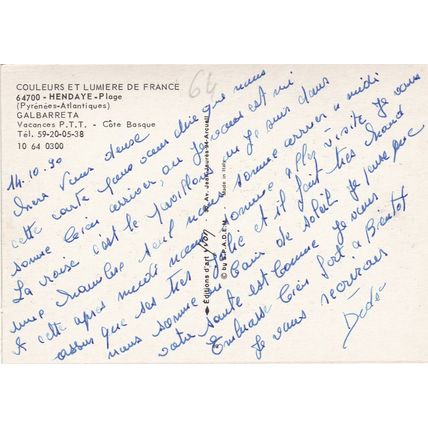 COULEURS ET LUMIERE DE FRANCE
64700 - HENDAYE-Plage
(Pyrénées-Atlantiques)
GALBARRETA
Vacances P.T.T. - Côte Basque
Tél. 59-20-05-38
10 64 0300
64
14.10.90
cette carte pour vous dire que nous
somme bien arriver, où je vous est mi
La croise c'est le pavillon ou je suis dans
une chambre seul nous somme arriver a midi
cette après midi nous somme aller visite je vous
assus que ses très et il fait très chaud
nous somme au bain de soleil je pense que
votre santé est bonne je vous
Embrasse bien fort a Bientôt
Je vous recrirai
Dédée
Éditions d'art YVON
Made in Italy
© by S.P.A.D.E.M.